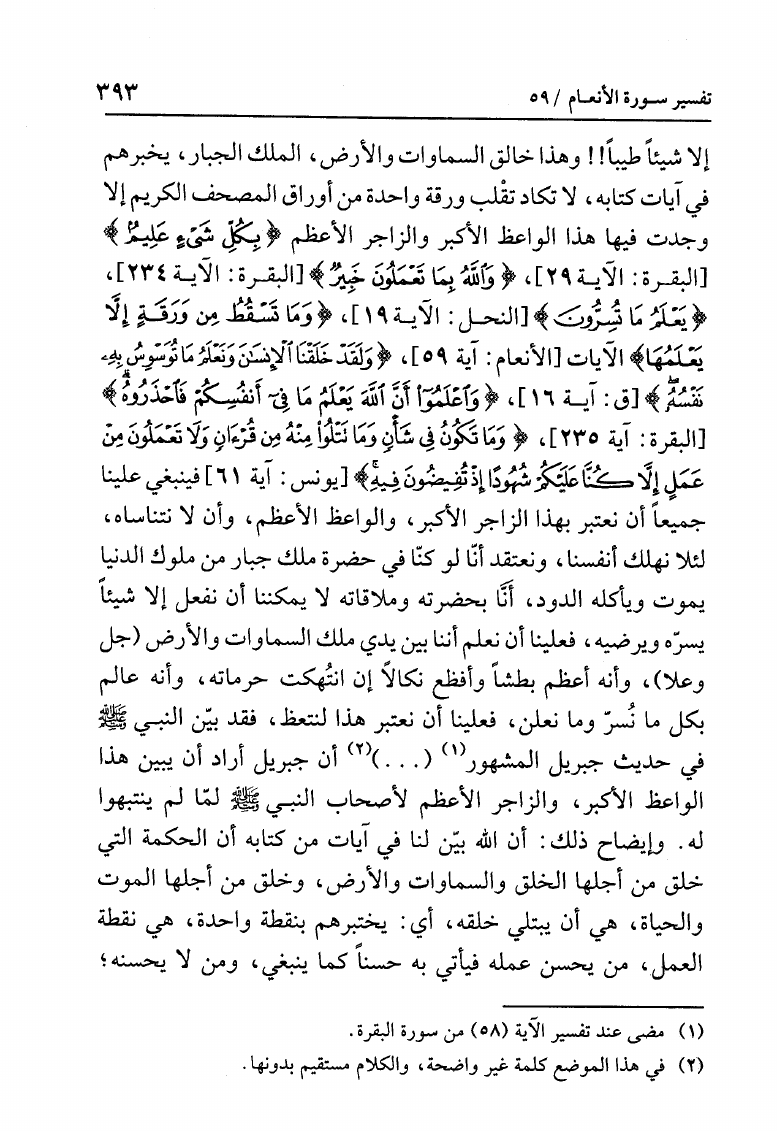 تفسير سورة الأنعام / ٥٩
٣٩٣
إلا شيئاً طيباً!! وهذا خالق السماوات والأرض، الملك الجبار، يخبرهم
في آيات كتابه، لا تكاد تقْلب ورقة واحدة من أوراق المصحف الكريم إلا
وجدت فيها هذا الواعظ الأكبر والزاجر الأعظم ﴿بِكُلِّ شَىْءٍ عَلِيمٌ﴾
[البقرة: الآية ٢٩]، ﴿وَاللَّهُ بِمَا تَعْمَلُونَ خَبِيرٌ﴾ [البقرة: الآية ٢٣٤]،
﴿يَعْلَمُ مَا تُسِرُّونَ﴾ [النحل: الآية ١٩]، ﴿وَمَا تَسْقُطُ مِن وَرَقَةٍ إِلَّا
يَعْلَمُهَا﴾ الآيات [الأنعام: آية ٥٩]، ﴿وَلَقَدْ خَلَقْنَا الْإِنسَٰنَ وَنَعْلَمُ مَا تُوَسْوِسُ بِهِۦ
نَفْسُهُۥ﴾ [ق: آية ١٦]، ﴿وَاعْلَمُوٓا أَنَّ اللَّهَ يَعْلَمُ مَا فِىٓ أَنفُسِكُمْ فَاحْذَرُوهُ﴾
[البقرة: آية ٢٣٥]، ﴿وَمَا تَكُونُ فِى شَأْنٍ وَمَا تَتْلُوا مِنْهُ مِن قُرْءَانٍ وَلَا تَعْمَلُونَ مِنْ
عَمَلٍ إِلَّا كُنَّا عَلَيْكُمْ شُهُودًا إِذْ تُفِيضُونَ فِيهِ﴾ [يونس: آية ٦١] فينبغي علينا
جميعاً أن نعتبر بهذا الزاجر الأكبر، والواعظ الأعظم، وأن لا نتناساه،
لئلا نهلك أنفسنا، ونعتقد أنّا لو كنّا في حضرة ملك جبار من ملوك الدنيا
يموت ويأكله الدود، أنَّا بحضرته وملاقاته لا يمكننا أن نفعل إلا شيئاً
يسرّه ويرضيه، فعلينا أن نعلم أننا بين يدي ملك السماوات والأرض (جل
وعلا)، وأنه أعظم بطشاً وأفظع نكالاً إن انتُهكت حرماته، وأنه عالم
بكل ما نُسرّ وما نعلن، فعلينا أن نعتبر هذا لنتعظ، فقد بيّن النبي ﷺ
في حديث جبريل المشهور(١) (...)(٢) أن جبريل أراد أن يبين هذا
الواعظ الأكبر، والزاجر الأعظم لأصحاب النبي ﷺ لمّا لم ينتبهوا
له. وإيضاح ذلك: أن الله بيّن لنا في آيات من كتابه أن الحكمة التي
خلق من أجلها الخلق والسماوات والأرض، وخلق من أجلها الموت
والحياة، هي أن يبتلي خلقه، أي: يختبرهم بنقطة واحدة، هي نقطة
العمل، من يحسن عمله فيأتي به حسناً كما ينبغي، ومن لا يحسنه؛
(١) مضى عند تفسير الآية (٥٨) من سورة البقرة.
(٢) في هذا الموضع كلمة غير واضحة، والكلام مستقيم بدونها.